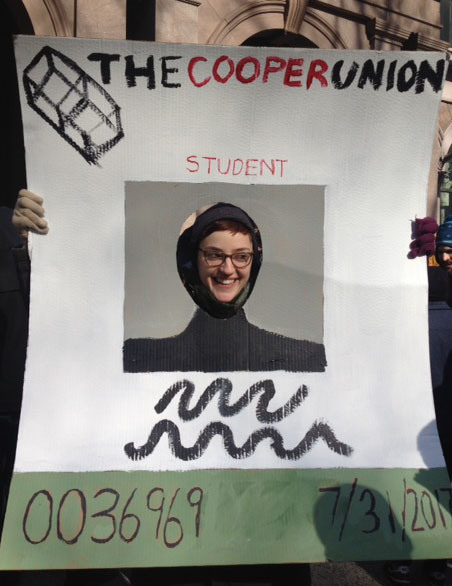 THE COOPER UNION
STUDENT
0036969 7/31/2017